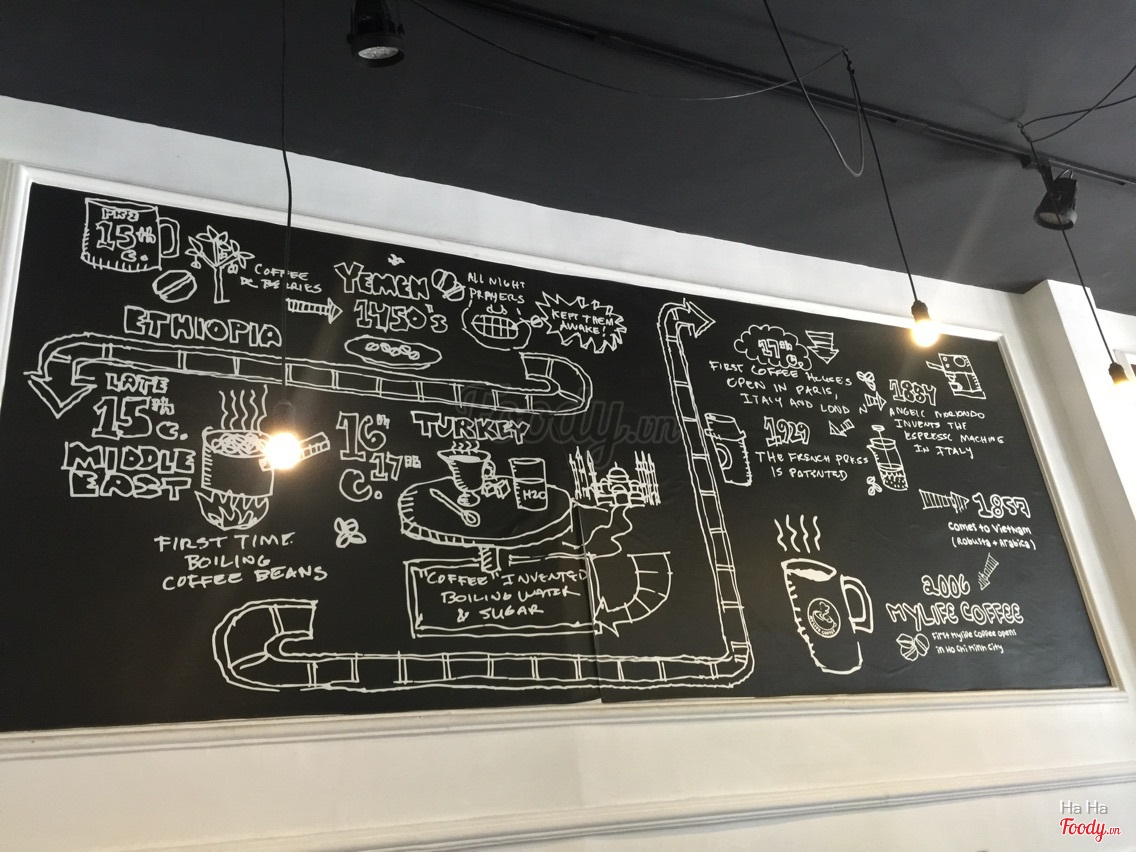 PRE
15th
C.
COFFEE
BERRIES
ETHIOPIA
YEMEN
1450's
ALL NIGHT
PRAYERS
KEPT THEM
AWAKE!
LATE
15th
C.
MIDDLE
EAST
FIRST TIME
BOILING
COFFEE BEANS
16th
C. 17th
C.
TURKEY
H2O
"COFFEE" INVENTED
BOILING WATER
& SUGAR
17th
C.
FIRST COFFEE HOUSES
OPEN IN PARIS,
ITALY AND LONDON
1884
ANGELO MORIONDO
INVENTS THE
ESPRESSO MACHINE
IN ITALY
1929
THE FRENCH PRESS
IS PATENTED
1857
Comes to Vietnam
(Robusta + Arabica)
2006
MYLIFE COFFEE
First Mylife Coffee opens
in Ho Chi Minh City
Foody.vn
Ha Ha
Foody.vn